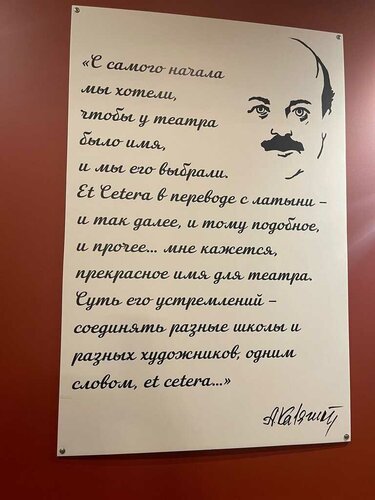 «С самого начала
мы хотели,
чтобы у театра
было имя,
и мы его выбрали.
Et Cetera в переводе с латыни –
и так далее, и тому подобное,
и прочее... мне кажется,
прекрасное имя для театра.
Суть его устремлений –
соединять разные школы и
разных художников, одним
словом, et cetera...»